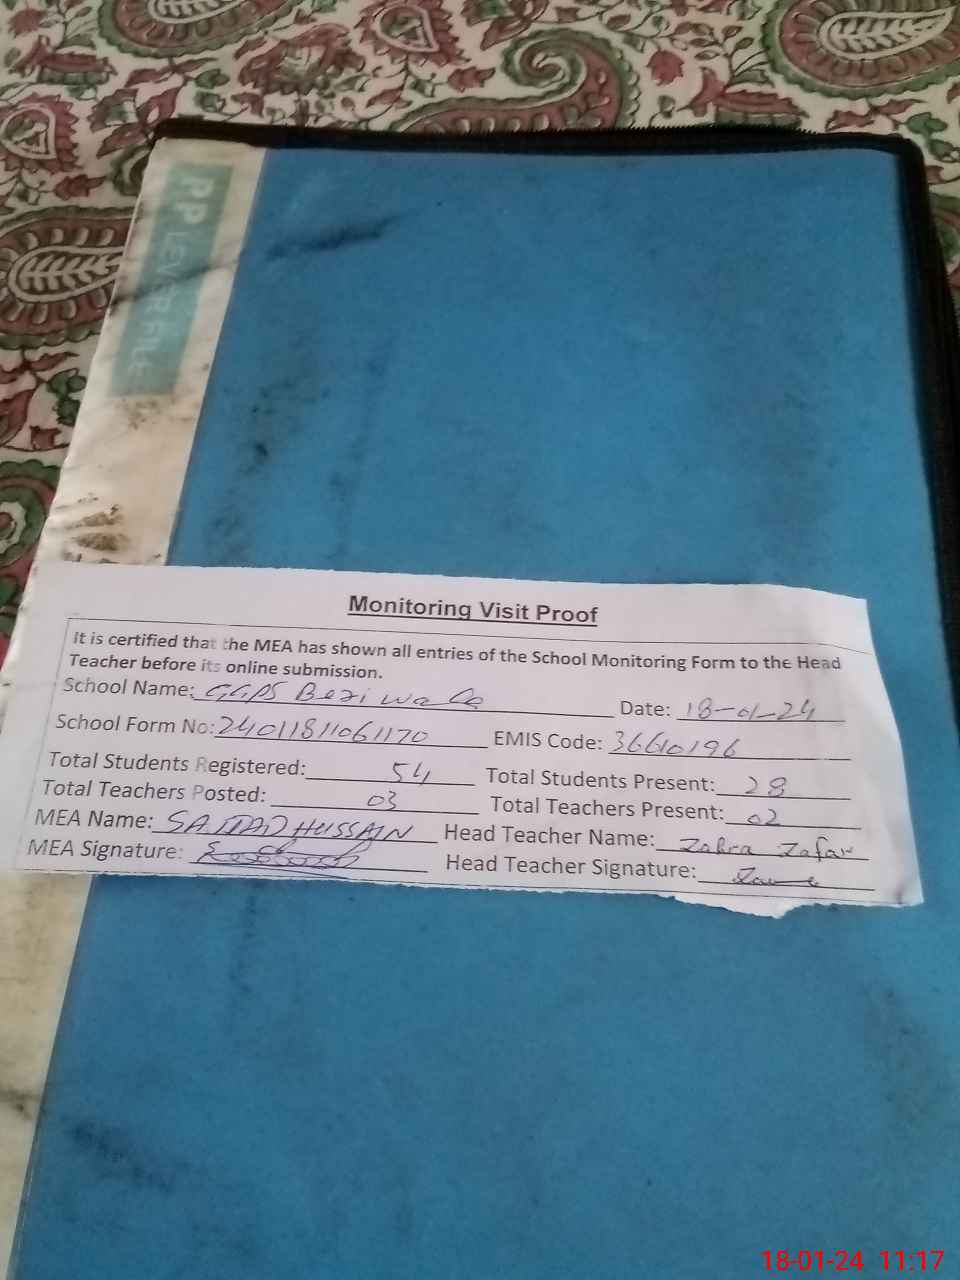 PP LEVER FILE
Monitoring Visit Proof
It is certified that the MEA has shown all entries of the School Monitoring Form to the Head
Teacher before its online submission.
School Name: GGPS Beriwala Date: 18-01-24
School Form No: 24011811061170 EMIS Code: 36610196
Total Students Registered: 54 Total Students Present: 28
Total Teachers Posted: 03 Total Teachers Present: 02
MEA Name: SAJJAD HUSSAIN Head Teacher Name: Zahra Zafar
MEA Signature: Head Teacher Signature:
18-01-24 11:17